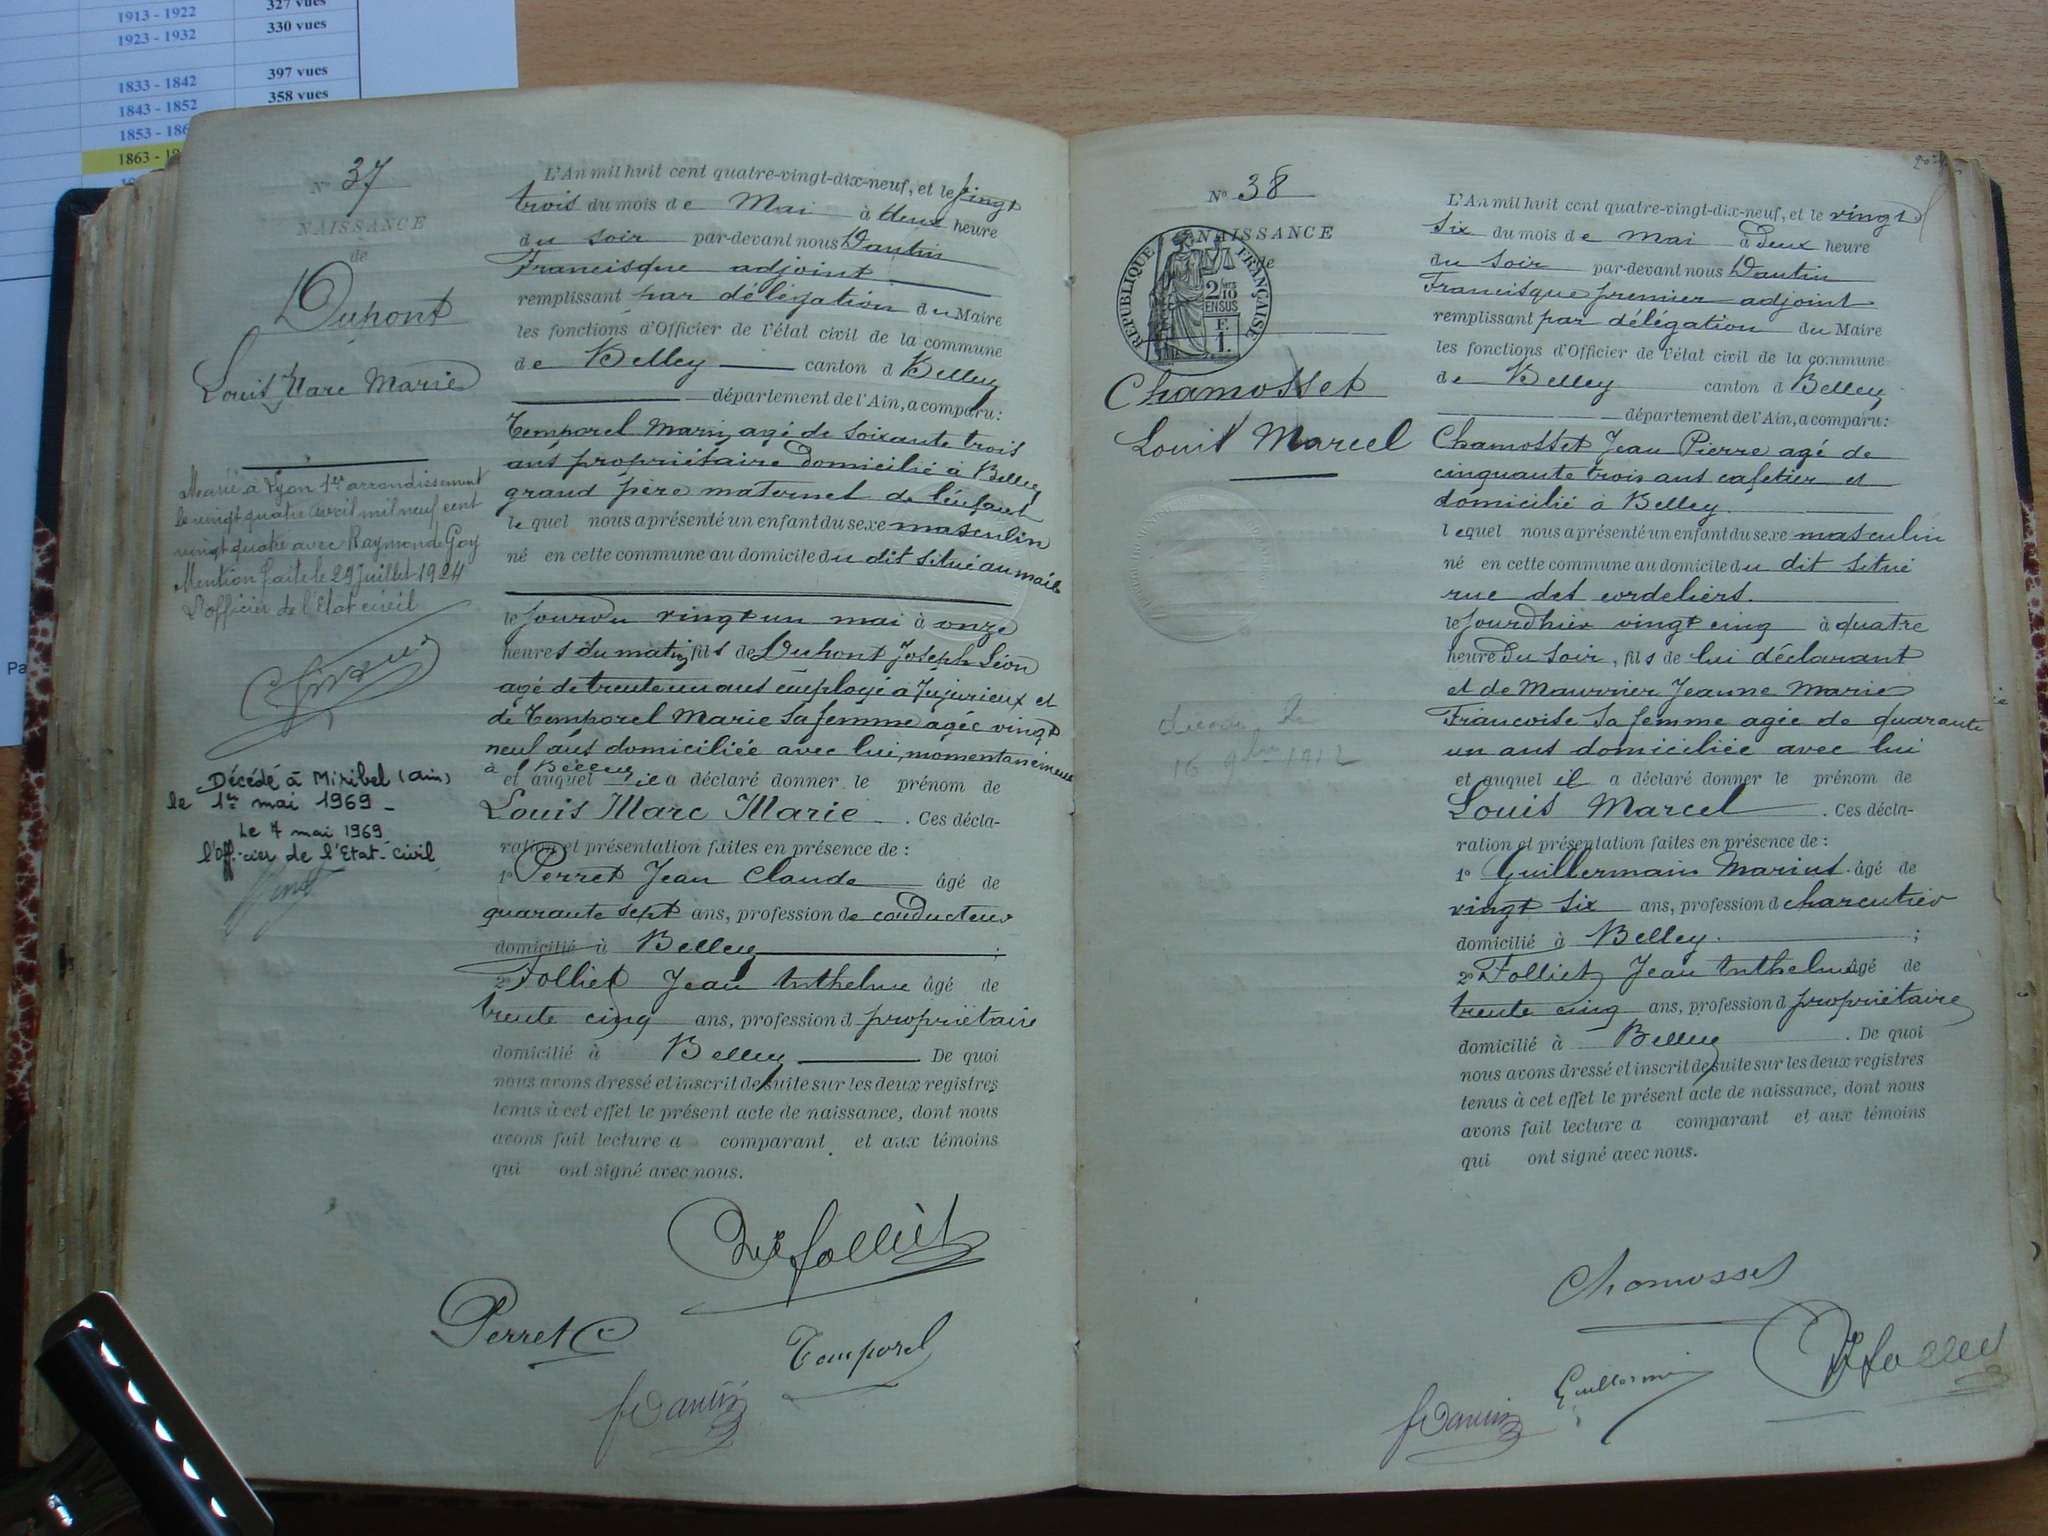 327 vues
1913 - 1922
330 vues
1923 - 1932
397 vues
1833 - 1842
358 vues
1843 - 1852
1853 - 186
1863 - 1
Pa
N° 37
NAISSANCE
de
Dupont
Louis Marc Marie
Marié à Lyon 1er arrondissement
le vingt quatre avril mil neuf cent
vingt quatre avec Raymonde Goy
Mention faite le 29 Juillet 1924
L'officier de l'Etat civil
Décédé à Miribel (Ain)
le 1er mai 1969 -
Le 7 mai 1969
l'Off.cier de l'Etat-Civil
L'An mil huit cent quatre-vingt-dix-neuf, et le vingt
trois du mois de Mai à deux heure
du soir par-devant nous Dantin
Francisque adjoint
remplissant par délégation du Maire
les fonctions d'Officier de l'état civil de la commune
de Belley canton d Belley
département de l'Ain, a comparu :
Temporel Marin, agé de soixante trois
ans propriétaire domicilié à Belley
grand père maternel de l'enfant
le quel nous a présenté un enfant du sexe masculin
né en cette commune au domicile du dit situé au mail
le jour du vingt un mai à onze
heures du matin, fils de Dupont Joseph Léon
agé de trente un ans employé à Jujurieux et
de Temporel Marie sa femme agée vingt
neuf ans domiciliée avec lui, momentanément
à Belley
et auquel il a déclaré donner le prénom de
Louis Marc Marie . Ces décla-
ration et présentation faites en présence de :
1° Perret Jean Claude âgé de
quarante sept ans, profession de conducteur
domicilié à Belley ;
2° Folliet Jean Anthelme âgé de
trente cinq ans, profession d propriétaire
domicilié à Belley De quoi
nous avons dressé et inscrit de suite sur les deux registres
tenus à cet effet le présent acte de naissance, dont nous
avons fait lecture a comparant et aux témoins
qui ont signé avec nous.
folliet
Perret C
Temporel
f Dantin
N° 38
NAISSANCE
de
RÉPUBLIQUE FRANÇAISE
2/10
EN SUS
F.
1.
Chamosset
Louis Marcel
16 9bre 1912
L'An mil huit cent quatre-vingt-dix-neuf, et le vingt
six du mois de Mai à deux heure
du soir par-devant nous Dantin
Francisque premier adjoint
remplissant par délégation du Maire
les fonctions d'Officier de l'état civil de la commune
de Belley canton d Belley
département de l'Ain, a comparu :
Chamosset Jean Pierre agé de
cinquante trois ans cafetier et
domicilié à Belley
lequel nous a présenté un enfant du sexe masculin
né en cette commune au domicile du dit situé
rue des cordeliers.
le jour d'hier vingt cinq à quatre
heure du soir, fils de lui déclarant
et de Meurier Jeanne Marie
Francoise sa femme agée de quarante
un ans domiciliée avec lui
et auquel il a déclaré donner le prénom de
Louis Marcel . Ces décla-
ration et présentation faites en présence de :
1° Guillermain Marius âgé de
vingt six ans, profession d charcutier
domicilié à Belley. ;
2° Folliet Jean Anthelme âgé de
trente cinq ans, profession d propriétaire
domicilié à Belley . De quoi
nous avons dressé et inscrit de suite sur les deux registres
tenus à cet effet le présent acte de naissance, dont nous
avons fait lecture a comparant et aux témoins
qui ont signé avec nous.
Chamosset
folliet
Guillermin
f Dantin